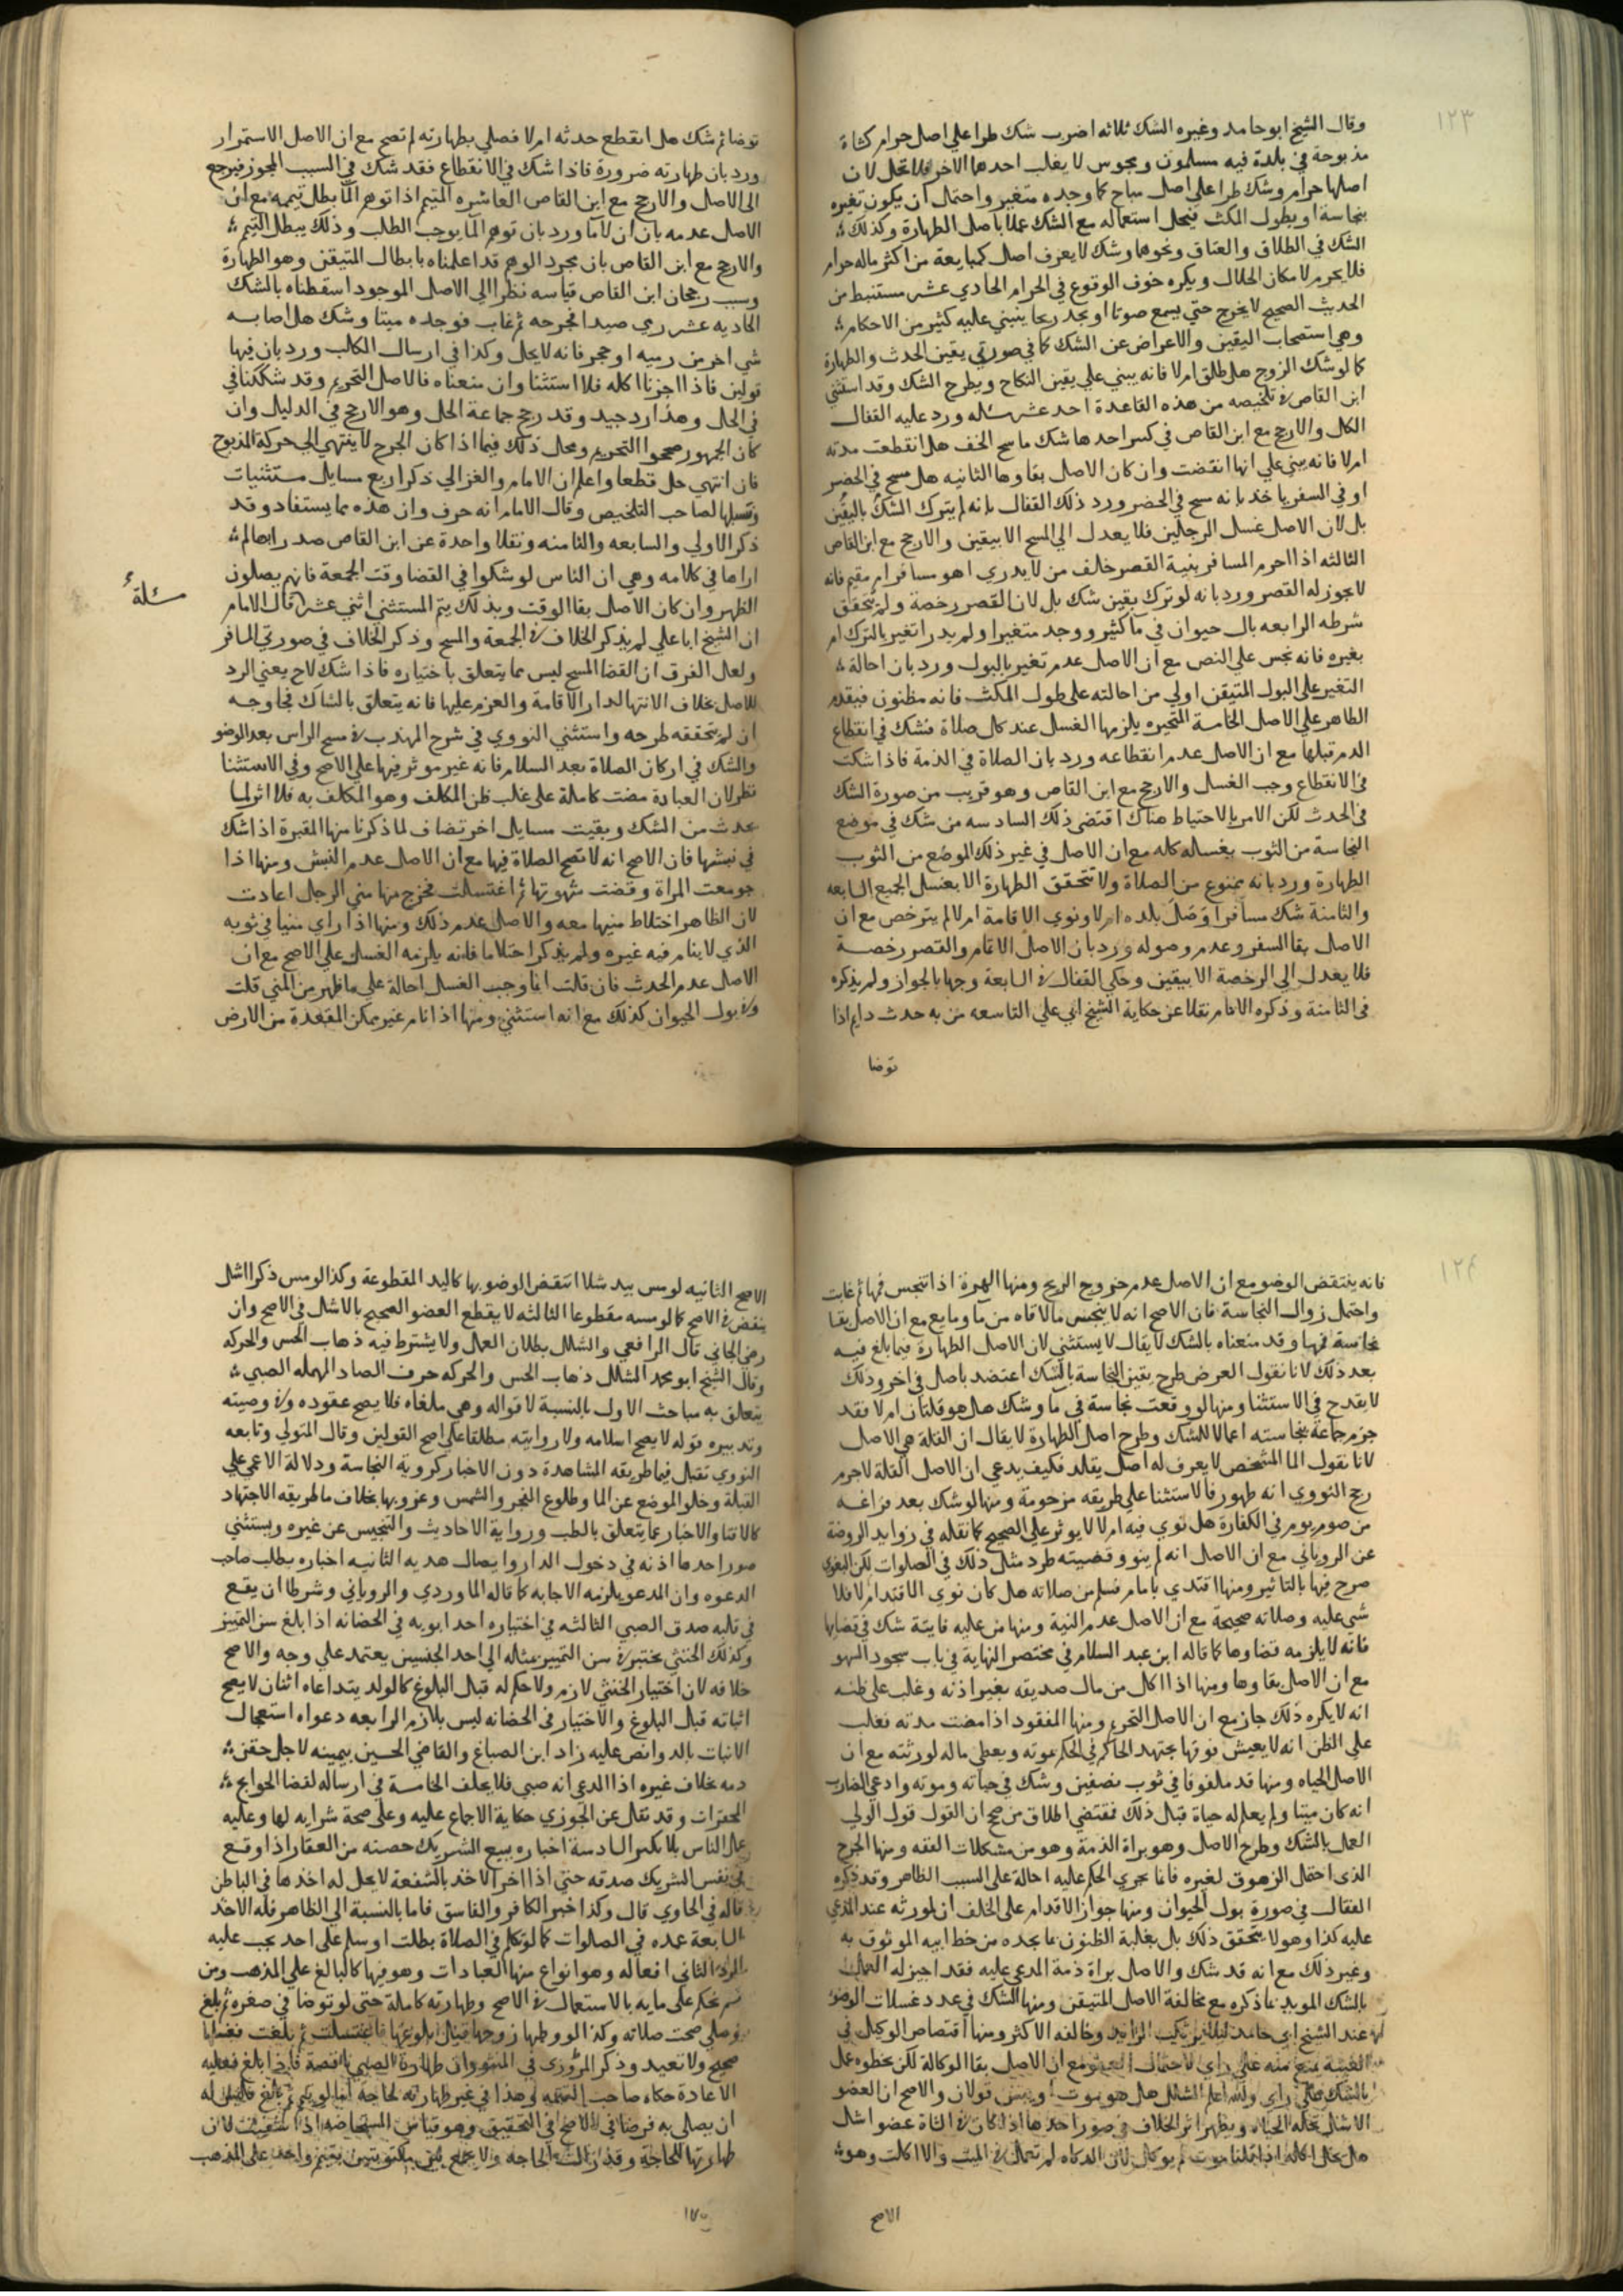 ١٢٣
وقال الشيخ ابو حامد وغيره الشك ثلاثه اضرب شك طرا علي اصل حرام كشاة
مذبوحة في بلدة فيه مسلمون ومجوس لا يغلب احدها الاخر فلا تحل لان
اصلها حرام وشك طرا علي اصل مباح كما وجده متغير واحتمل ان يكون تغيره
بنجاسة او بطول المكث فيحل استعماله مع الشك عملا باصل الطهارة وكذلك
الشك في الطلاق والعتاق ونحوها وشك لا يعرف اصل كمبايعة من اكثر ماله حرام
فلا يحرم لامكان الحلال ويكره خوف الوقوع في الحرام الحادي عشر مستنبط من
الحديث الصحيح لا يخرج حتي يسمع صوتا او يجد ريحا ينبني عليه كثير من الاحكام
وهي استصحاب اليقين والاعراض عن الشك كما في صورتي يقين الحدث والطهارة
كما لو شك الزوج هل طلق ام لا فانه يبني علي يقين النكاح ويطرح الشك وقد استثني
ابن القاص في تلخيصه من هذه القاعدة احد عشر مسله ورد عليه القفال
الكل والارجح مع ابن القاص في كسر احدها شك ماسح الخف هل انقطعت مدته
ام لا فانه يبني علي انها انقضت وان كان الاصل بقاوها الثانيه هل مسح في الحضر
او في السفر ياخذ بانه مسح في الحضر ورد ذلك القفال بانه لم يترك الشك باليقين
بل لان الاصل غسل الرجلين فلا يعدل الي المسح الا بيقين والارجح مع ابن القاص
الثالثه اذا احرم المسافر بنية القصر خلف من لا يدري اهو مسافر ام مقيم فانه
لا يجوز له القصر ورد بانه لو ترك يقين شك بل لان القصر رخصة ولم يتحقق
شرطه الرابعه بال حيوان في ما كثير ووجد متغيرا ولم يدر اتغير بالترك ام
بغيره فانه نجس علي النص مع ان الاصل عدم تغير بالبول ورد بان احالة
التغير علي البول المتيقن اولي من احالته علي طول المكث فانه مظنون فيقدم
الظاهر علي الاصل الخامسة المتحيره يلزمها الغسل عند كل صلاة فشك في انقطاع
الدم قبلها مع ان الاصل عدم انقطاعه ورد بان الصلاة في الذمة فاذا شكت
في الانقطاع وجب الغسل والارجح مع ابن القاص وهو قريب من صورة الشك
في الحدث لكن الامر بالاحتياط هناك اقتضي ذلك السادسه من شك في موضع
النجاسة من الثوب يغسله كله مع ان الاصل في غير ذلك الموضع من الثوب
الطهارة ورد بانه ممنوع من الصلاة ولا تتحقق الطهارة الا بغسل الجميع السابعه
والثامنة شك مسافرا وصل بلده ام لا ونوي الاقامة ام لا لم يترخص مع ان
الاصل بقا السفر وعدم وصوله ورد بان الاصل الاتمام والقصر رخصة
فلا يعدل الي الرخصة الا بيقين وحكي القفال في السابعة وجها بالجواز ولم يذكره
في الثامنة وذكره الامام نقلا عن حكاية الشيخ ابي علي التاسعه من به حدث دايم اذا
توضا
توضا ثم شك هل انقطع حدثه ام لا فصلي بطهارته لم تصح مع ان الاصل الاستمرار
ورد بان طهارته ضرورة فاذا شك في الانقطاع فقد شك في السبب المجوز فيرجع
الي الاصل والارجح مع ابن القاص العاشره المتيمم اذا توهم الما بطل تيممه مع ان
الاصل عدمه بان لا ما ورد بان توهم الما يوجب الطلب وذلك يبطل التيمم
والارجح مع ابن القاص بان مجرد الوهم قد اعلمناه بابطال المتيقن وهو الطهارة
وسبب رجحان ابن القاص قياسه نظرا الي الاصل الموجود اسقطناه بالشك
الحاديه عشر رمي صيدا فجرحه ثم غاب فوجده ميتا وشك هل اصابه
شي اخر من رميه او حجر فانه لا يحل وكذا في ارسال الكلب ورد بان فيها
قولين فاذا اجزنا اكله فلا استثنا وان منعناه فالاصل التحريم وقد شككنا في
في الحل وهذا رد جيد وقد رجح جماعة الحل وهو الارجح في الدليل وان
كان الجمهور صححوا التحريم ومحل ذلك فيما اذا كان الجرح لا ينتهي الي حركة المذبوح
فان انتهي حل قطعا واعلم ان الامام والغزالي ذكرا اربع مسايل مستثنيات
ونسبها لصاحب التلخيص وقال الامام انه حرف وان هذه مما يستفاد وقد
ذكر الاولي والسابعه والثامنه ونقلا واحدة عن ابن القاص صدر رابعا لم
اراها في كلامه وهي ان الناس لو شكوا في القضا وقت الجمعة فانهم يصلون
مسئلة
الظهر وان كان الاصل بقا الوقت وبذلك يتم المستثني اثني عشر قال الامام
ان الشيخ ابا علي لم يذكر الخلاف في الجمعة والمسح وذكر الخلاف في صورتي المسافر
ولعل الفرق ان القضا المسح ليس مما يتعلق باختياره فاذا شك لاح يعني الرد
للاصل بخلاف الانتها لدار الاقامة والعزم عليها فانه يتعلق بالشاك فجا وجه
ان لم يتحققه طرحه واستثني النووي في شرح المهذب في مسح الراس بعد الوضو
والشك في اركان الصلاة بعد السلام فانه غير موثر فيها علي الاصح وفي الاستثنا
نظر لان العبادة مضت كاملة علي غلب ظن المكلف وهو المكلف به فلا اثر لما
يحدث من الشك وبقيت مسايل اخر تضاف لما ذكرنا منها المقبرة اذا شك
في نبشها فان الاصح انه لا تصح الصلاة فيها مع ان الاصل عدم النبش ومنها اذا
جومعت المراة وقضت شهوتها ثم اغتسلت فخرج منها مني الرجل اعادت
لان الظاهر اختلاط منيها معه والاصل عدم ذلك ومنها اذا راي منيا في ثوبه
الذي لا ينام فيه غيره ولم يذكر احتلاما فانه يلزمه الغسل علي الاصح مع ان
الاصل عدم الحدث فان قلت انما وجب الغسل احالة علي ما ظهر من المني قلت
وفي بول الحيوان كذلك مع انه استثني ومنها اذا نام غير ممكن المقعدة من الارض
١٢٤
فانه ينتقض الوضو مع ان الاصل عدم خروج الريح ومنها الهرة اذا تنجس فمها ثم غابت
واحتمل زوال النجاسة فان الاصح انه لا ينجس ما لاقاه من ما ومايع مع ان الاصل بقا
نجاسة فمها وقد منعناه بالشك لا يقال لا يستثني لان الاصل الطهارة فيما بلغ فيه
بعد ذلك لانا نقول الغرض طرح يقين النجاسة بالشك اعتضد باصل في اخر وذلك
لا يقدح في الاستثنا ومنها لو وقعت نجاسة في ما وشك هل هو قلتان ام لا فقد
جزم جماعة بنجاسته اعمالا للشك وطرح اصل الطهارة لا يقال ان القلة هي الاصل
لانا نقول الما المشخص لا يعرف له اصل يقلد فكيف يدعي ان الاصل القلة لا جرم
رجح النووي انه طهور فالاستثنا علي طريقه مزحومة ومنها لو شك بعد فراغه
من صوم يوم في الكفارة هل نوي فيه ام لا لا يوثر علي الصحيح كما نقله في زوايد الروضة
عن الروياني مع ان الاصل انه لم ينو وقضيته طرد مثل ذلك في الصلوات لكن البغوي
صرح فيها بالتاثير ومنها اقتدي بامام فسلم من صلاته هل كان نوي الاقتدا ام لا فلا
شي عليه وصلاته صحيحة مع ان الاصل عدم النية ومنها من عليه فايتة شك في قضايها
فانه لا يلزمه قضاوها كما قاله ابن عبد السلام في مختصر النهاية في باب سجود السهو
مع ان الاصل بقاوها ومنها اذا اكل من مال صديقه بغير اذنه وغلب علي ظنه
انه لا يكره ذلك جاز مع ان الاصل التحريم ومنها المفقود اذا مضت مدته فغلب
علي الظن انه لا يعيش فوقها يجتهد الحاكم في الحكم بموته ويعطي ماله لورثته مع ان
الاصل الحياه ومنها قد ملفوفا في ثوب نصفين وشك في حياته وموته وادعي الضارب
انه كان ميتا ولم يعلم له حياة قبل ذلك فمقتضي اطلاق من صحح ان القول قول الولي
العمل بالشك وطرح الاصل وهو براة الذمة وهو من مشكلات الفقه ومنها الجرح
الذي احتمل الزهوق لغيره فانما يجري الحكم عليه احالة علي السبب الظاهر وقد ذكره
القفال في صورة بول الحيوان ومنها جواز الاقدام علي الخلف ان لمورثه عند المدعي
عليه كذا وهو لا يتحقق ذلك بل بغلبة الظنون بما يجده من خط ابيه الموثوق به
وغير ذلك مع انه قد شك والاصل براة ذمة المدعي عليه فقد اجيز له العمل
بالشك المويد بما ذكره مع مخالفة الاصل المتيقن ومنها الشك في عدد غسلات الوضو
عند الشيخ ابي حامد ليلا يرتكب الزايد وخالفه الاكثر ومنها اقتصاص الوكيل في
الغيبة يمنع منه علي راي لاحتمال العفو مع ان الاصل بقا الوكالة لكن بحظوه عمل
بالشك علي راي والله اعلم الشلل هل هو موت او يبس قولان والاصح ان العضو
الاشل تحله الحياه ويظهر اثر الخلاف في صور احدها اذا كان في الشاة عضو اشل
هل يحل اكله ان قلنا موت لم يوكل لان الذكاه لم تعمل في الميت والا اكلت وهو
الاصح
الاصح الثانيه لو مس بيد شلا انتقض الوضو بها كاليد المقطوعة وكذا لو مس ذكرا اشل
ينقض في الاصح كما لو مسه مقطوعا الثالثه لا يقطع العضو الصحيح بالاشل في الاصح وان
رضي الجاني قال الرافعي والشلل بطلان العمل ولا يشترط فيه ذهاب الحس والحركه
وقال الشيخ ابو محمد الشلل ذهاب الحس والحركه حرف الصاد المهمله الصبي
يتعلق به مباحث الاول بالنسبة لاقواله وهي ملغاه فلا يصح عقوده وفي وصيته
وتدبيره قوله لا يصح اسلامه ولا روايته مطلقا علي اصح القولين وقال المتولي وتابعه
النووي تقبل فيما طريقه المشاهدة دون الاخبار كروية النجاسة ودلالة الاعمي علي
القبلة وخلو الموضع عن الما وطلوع الفجر والشمس وغروبها بخلاف ما طريقه الاجتهاد
كالافتا والاخبار عما يتعلق بالطب ورواية الاحاديث والتنجيس عن غيره ويستثني
صور احدها اذنه في دخول الدار وايصال هديه الثانيه اخباره بطلب صاحب
الدعوه وان المدعو يلزمه الاجابه كما قاله الماوردي والروياني وشرطا ان يقع
في قلبه صدق الصبي الثالثه في اختياره احد ابويه في الحضانه اذا بلغ سن التمييز
وكذلك الخنثي يختبر في سن التمييز بمثله الي احد الجنسين يعتمد علي وجه والاصح
خلافه لان اختيار الخنثي لازم ولا حكم له قبل البلوغ كالولد يتداعاه اثنان لا يصح
اثباته قبل البلوغ والاختيار في الحضانه ليس بلازم الرابعه دعواه استعجال
الانبات بالدوا نص عليه زاد ابن الصباغ والقاضي الحسين بيمينه لاجل حقن
دمه بخلاف غيره اذا ادعي انه صبي فلا يحلف الخامسة في ارساله لقضا الحوايج
المحقرات وقد نقل عن الجوزي حكاية الاجماع عليه وعلي صحة شرايه لها وعليه
عمل الناس بلا نكير السادسة اخباره ببيع الشريك حصته من العقار اذا وقع
في نفس الشريك صدقه حتي اذا اخر الاخذ بالشفعة لا يحل له اخذها في الباطن
قاله في الحاوي قال وكذا خبر الكافر والفاسق فاما بالنسبة الي الظاهر فله الاخذ
السابعة عمده في الصلوات كما لو تكلم في الصلاة بطلت او سلم علي احد يجب عليه
الرد الثاني افعاله وهو انواع منها العبادات وهو فيها كالبالغ علي المذهب ومن
ثم نحكم علي مايه بالاستعمال في الاصح وطهارته كاملة حتي لو توضا في صغره ثم بلغ
وصلي صحت صلاته وكذا لو وطيها زوجها قبل بلوغها فاغتسلت ثم بلغت فغسلها
صحيح ولا تعيد وذكر المروزي في المنثور ان طهارة الصبي ناقصة فاذا بلغ فعليه
الاعادة حكاه صاحب التتمه وهذا في غير طهارته لحاجة اما لو تيمم ثم بلغ فليس له
ان يصلي به فرضا في الاصح في التحقيق وهو قياس المستحاضه اذا شفيت لان
طهارتها للحاجة وقد زالت الحاجه ولا يجمع بين مكتوبتين بتيمم واحد علي المذهب